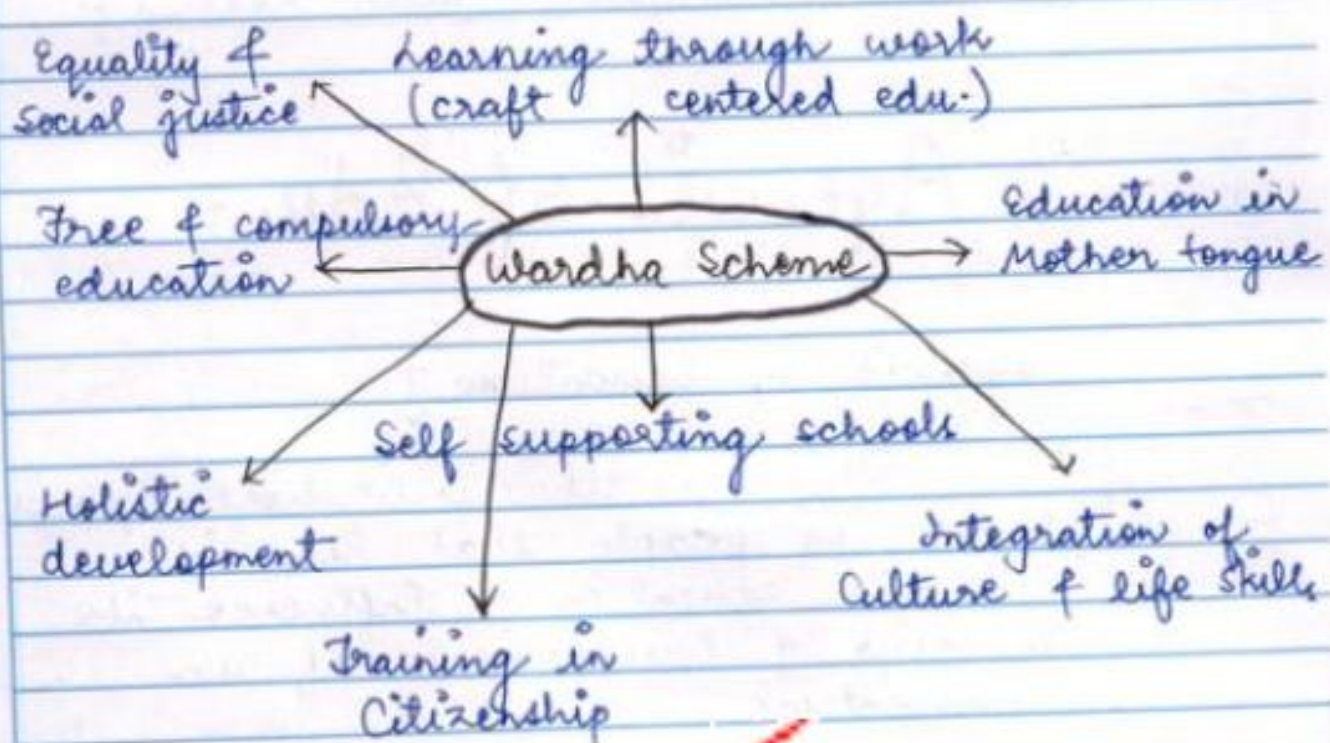 Equality &
social justice
Learning through work
(craft centered edu.)
Free & compulsory
education
Wardha Scheme
Education in
Mother tongue
Self supporting schools
Holistic
development
Integration of
Culture & life skills
Training in
Citizenship